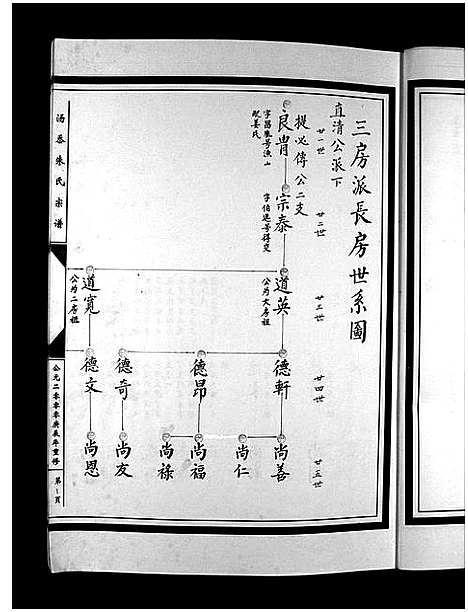 三房派長房世系圖
直清公派下
廿一世
廿二世
廿三世
廿四世
廿五世
提必傳公二支
良胄
配姜氏
宗泰
道英
公为大房祖
道寬
公为二房祖
德軒
德昂
德奇
德文
尚善
尚仁
尚福
尚禄
尚友
尚恩
朱氏宗谱
公元二零零零庚辰年重修
第1頁